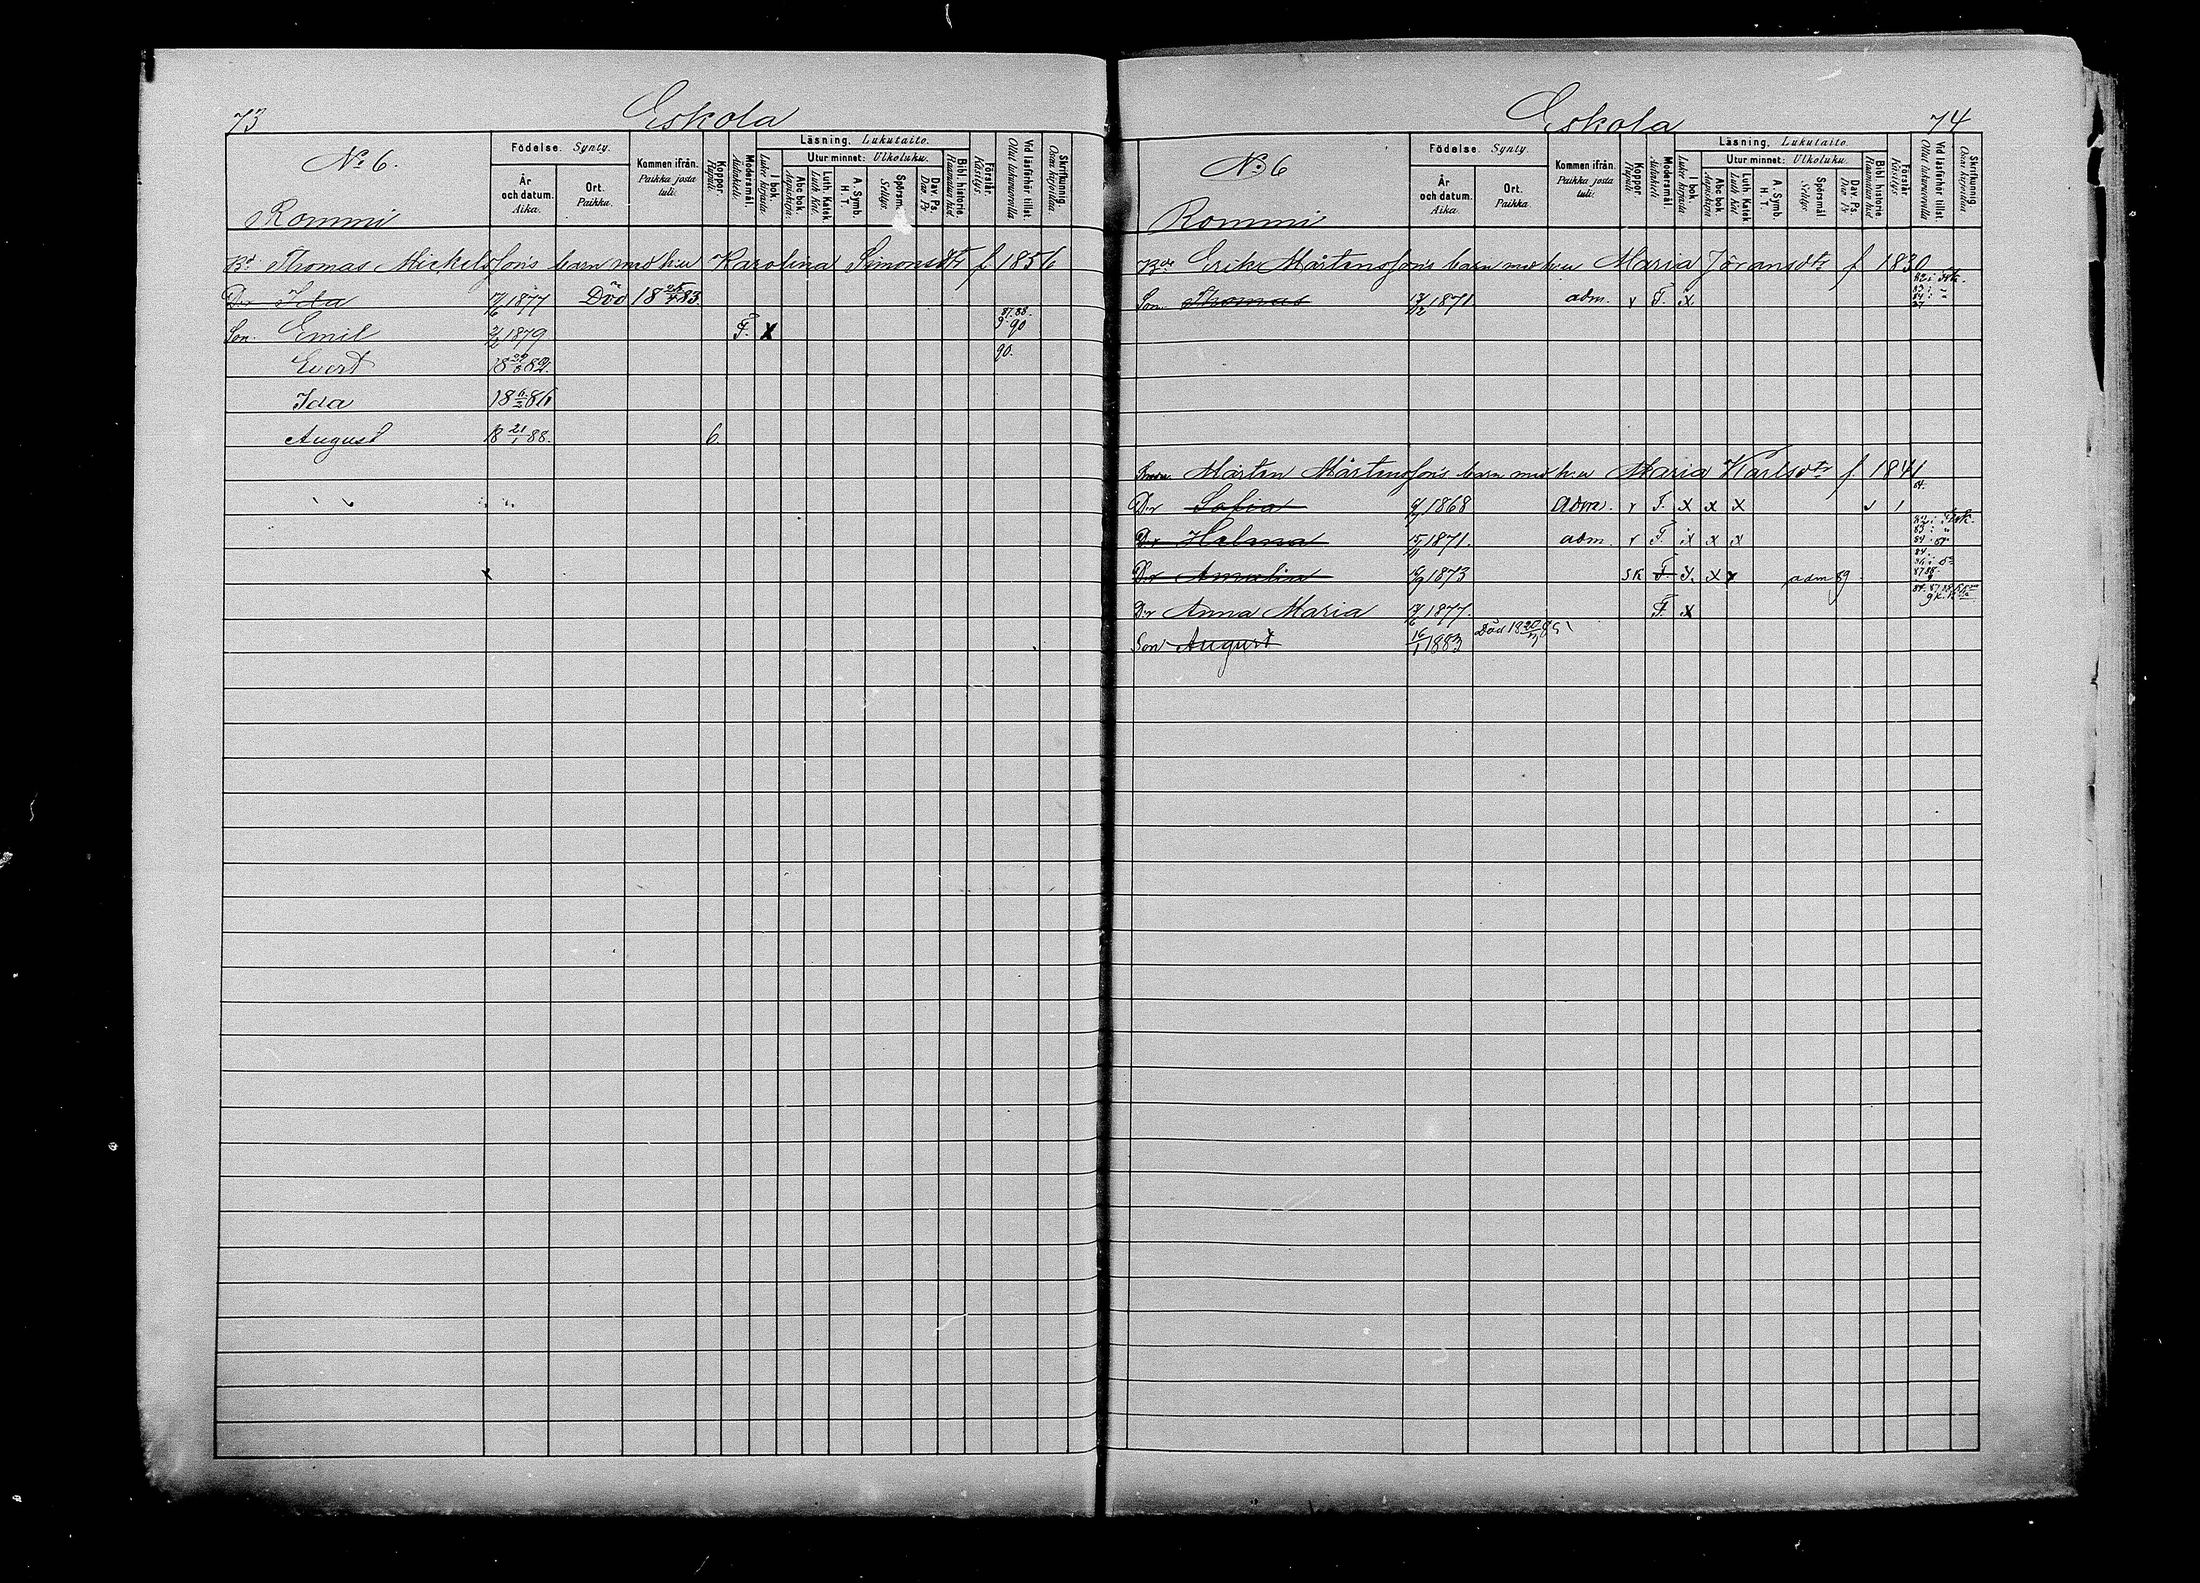 73
Eskola
No 6.
Rommi
Födelse. Synty.
År och datum. Aika.
Ort. Paikka.
Kommen ifrån. Paikka josta tuli:
Koppor. Rupuli.
Modersmål. Äidinkieli.
Läsning. Lukutaito.
I bok. Luku kirjasta
Utur minnet: Ulkoluku.
Abc bok. Aapiskirja.
Luth. Katek. Luth Kat.
A. Symb. H. T.
Spörsm. Selitys.
Dav. Ps. Dav. Ps
Bibl. historie. Raamatun hist.
Förstår. Käsitys.
Vid läsförhör. tillst. Ollut lukuvuorolla
Skrifkunnig. Osaa kirjoittaa
Bd. Thomas Mickelssons barn med h:u Karolina Simonsdtr f 1856
Dr Ida 1877 Död 1883
Son. Emil 1879 F. X 87. 88. 90
Evert 18 82. 90.
Ida 18 86
August 18 21/1 88. 6.
Eskola
74
No 6
Rommi
Födelse. Synty.
År och datum. Aika.
Ort. Paikka.
Kommen ifrån. Paikka josta tuli:
Koppor. Rupuli.
Modersmål. Äidinkieli.
Läsning. Lukutaito.
I bok. Luku kirjasta
Utur minnet: Ulkoluku.
Abc bok. Aapiskirja
Luth. Katek Luth Kat.
A. Symb. H. T.
Spörsmål Selitys.
Dav. Ps. Dav. Ps
Bibl. historie. Raamatun hist
Förstår. Käsitys.
Vid läsförhör. tillst. Ollut lukuvuorolla
Skrifkunnig. Osaa kirjoittaa
Erik Mårtenssons barn med h:u Maria Jöransdtr f 1830
Son. Thomas 1871 adm. v F. x
Mårten Mårtenssons barn med h:u Maria Karlsdtr f 1841
Dr Sofia 1868 adm. v F. x x x 84.
Dr Helma 1871. adm. v F. x x x
Dr Amalia 1873 sk F. x. x x adm 89
Dr Anna Maria 1877. F. x
Son August 16/1 1883 Död 18